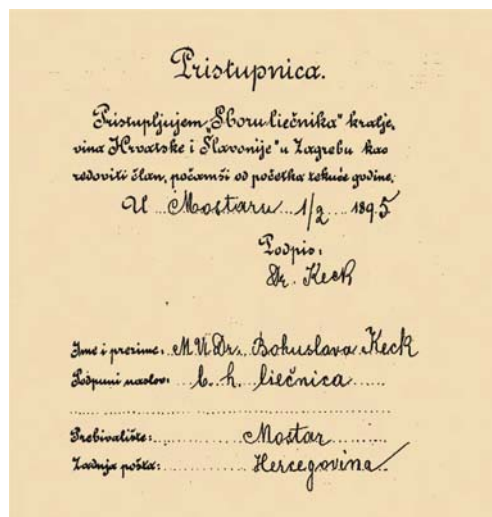 Pristupnica.
Pristupljujem „Sboru liečnika" kralje,
vina Hrvatske i Slavonije" u Zagrebu kao
redoviti član, počamši od početka tekuće godine.
U Mostaru 1/2 1895
Podpis:
Dr. Keck
Ime i prezime: M. U. Dr. Bohuslava Keck
Podpuni naslov: c. h. liečnica
Prebivalište: Mostar
Zadnja pošta: Hercegovina